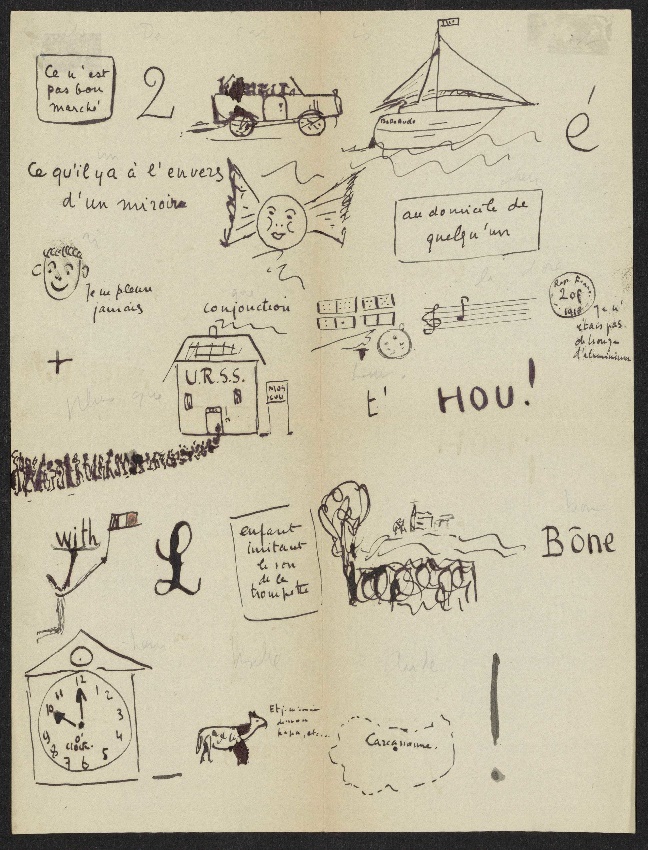 Ce n'est
pas bon
marché
2
é
Ce qu'il y a à l'envers
d'un miroir
au domicile de
quelqu'un
Je ne pleure
jamais
conjonction
20f
Je n'
étais pas
+
U.R.S.S.
MOS
COU
t'
HOU!
with
£
enfant
imitant
le son
de la
trompette
Bône
12
11
1
10
2
9
3
8
4
7
6
5
O'
clock.
Et je
papa, etc...
Carcassonne.
!